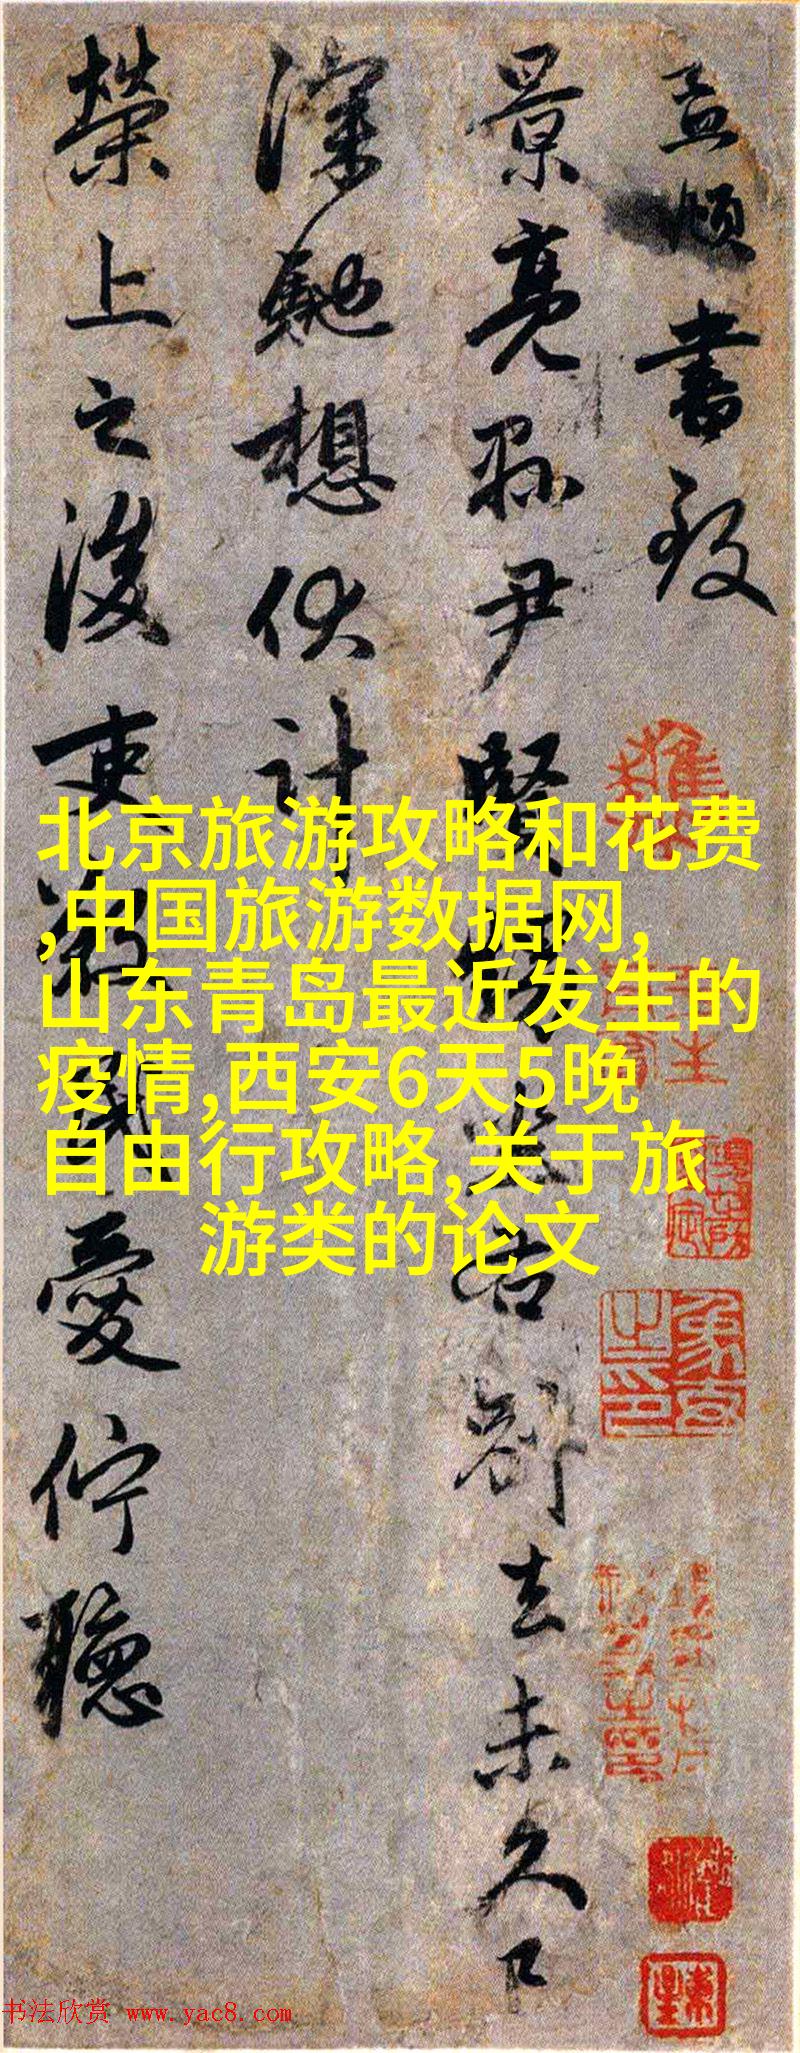 孟頫書致
景亮縣尹賢 坐右 别去未久
深馳想伏計
榮上之後吏 民愛佇聽
北京旅游攻略和花费
,中国旅游数据网,
山东青岛最近发生的
疫情,西安6天5晚
自由行攻略,关于旅
游类的论文
书法欣赏 www.yac8.com